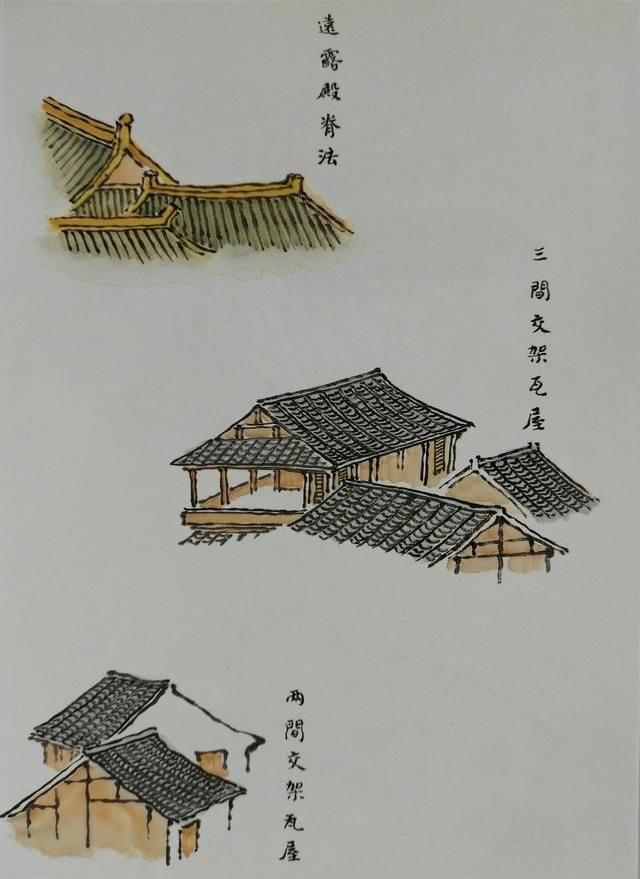 遠露殿脊法
三間交架瓦屋
两間交架瓦屋